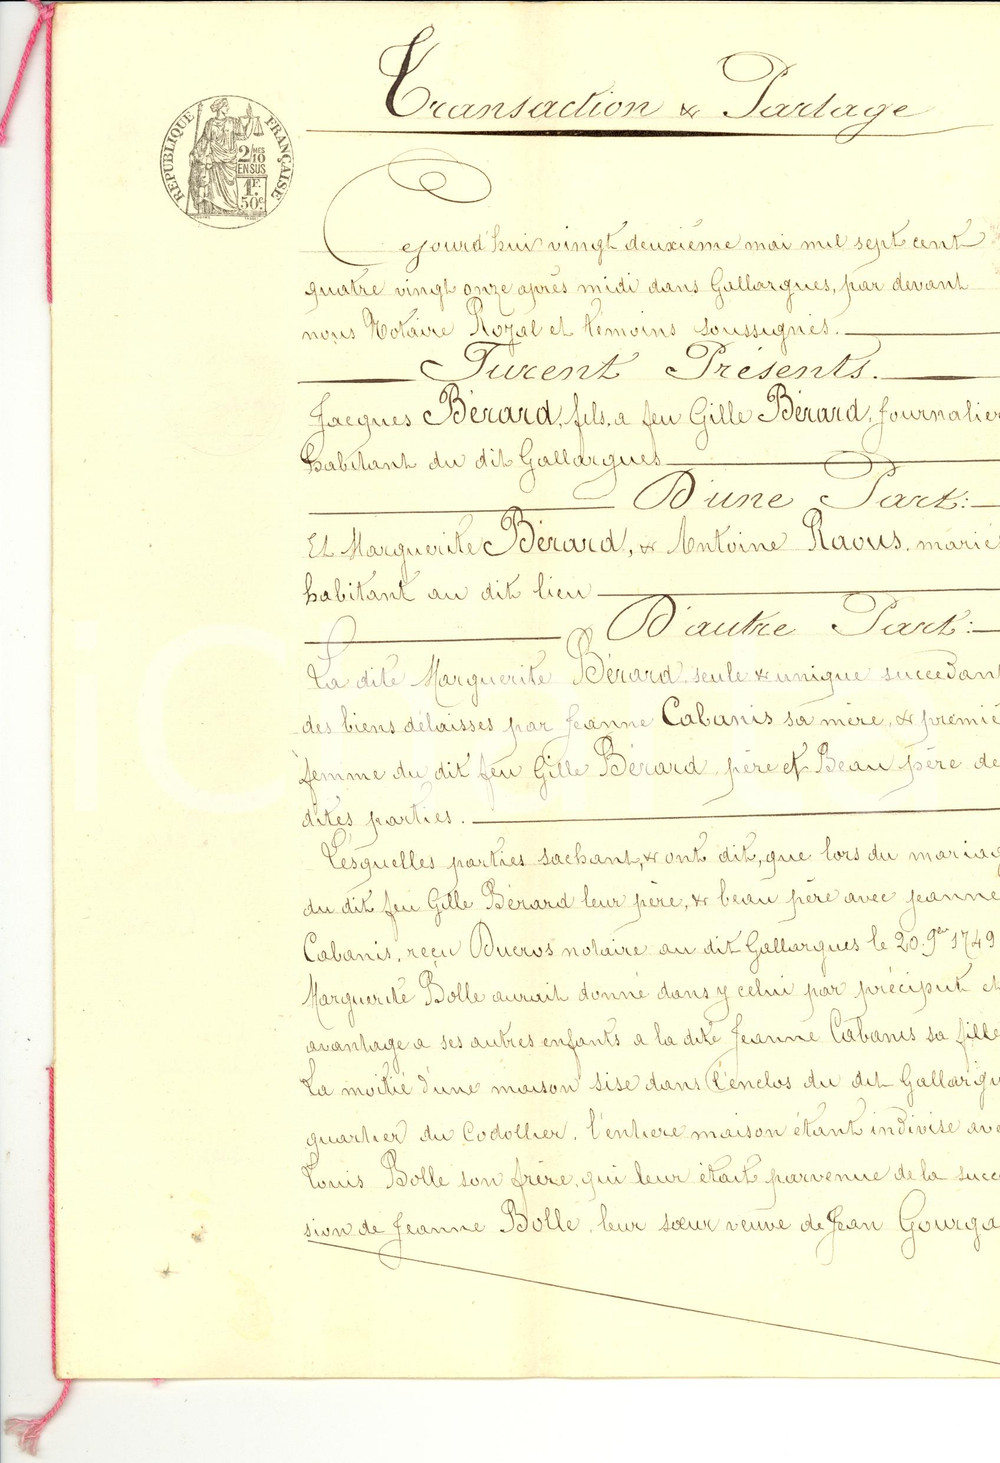 Transaction & Partage
RÉPUBLIQUE FRANÇAISE
2/10 MES
EN SUS
1F.
50c.
Cejourd'hui vingt deuxième mai mil sept cent
quatre vingt onze après midi dans Gallargues, par devant
nous Notaire Royal et témoins soussignés.
Furent Présents.
Jacques Bérard, fils, a feu Gille Bérard, Journalier
habitant du dit Gallargues
D'une Part:
Et Marguerite Bérard, & Antoine Raous, marié
habitant au dit lieu
D'autre Part:
La dite Marguerite Bérard, seule & unique succedant
des biens délaissés par Jeanne Cabanis sa mère, & premiè
femme du dit feu Gille Bérard, père et Beau père de
dites parties.
Lesquelles parties sachant, & ont dit, que lors du mariag
du dit feu Gille Bérard leur père, & beau père avec jeanne
Cabanis, reçu Ducros notaire au dit Gallargues le 20. 9bre 1749
Marguerite Bolle aurait donné dans y celui par préciput et
avantage a ses autres enfants a la dite Jeanne Cabanis sa fille
La moitié d'une maison sise dans l'enclos du dit Gallargu
quartier du Codollier, l'entiere maison étant indivise ave
Louis Bolle son frère, qui leur était parvenue de la succe
sion de Jeanne Bolle, leur sœur veuve de Jean Gourga